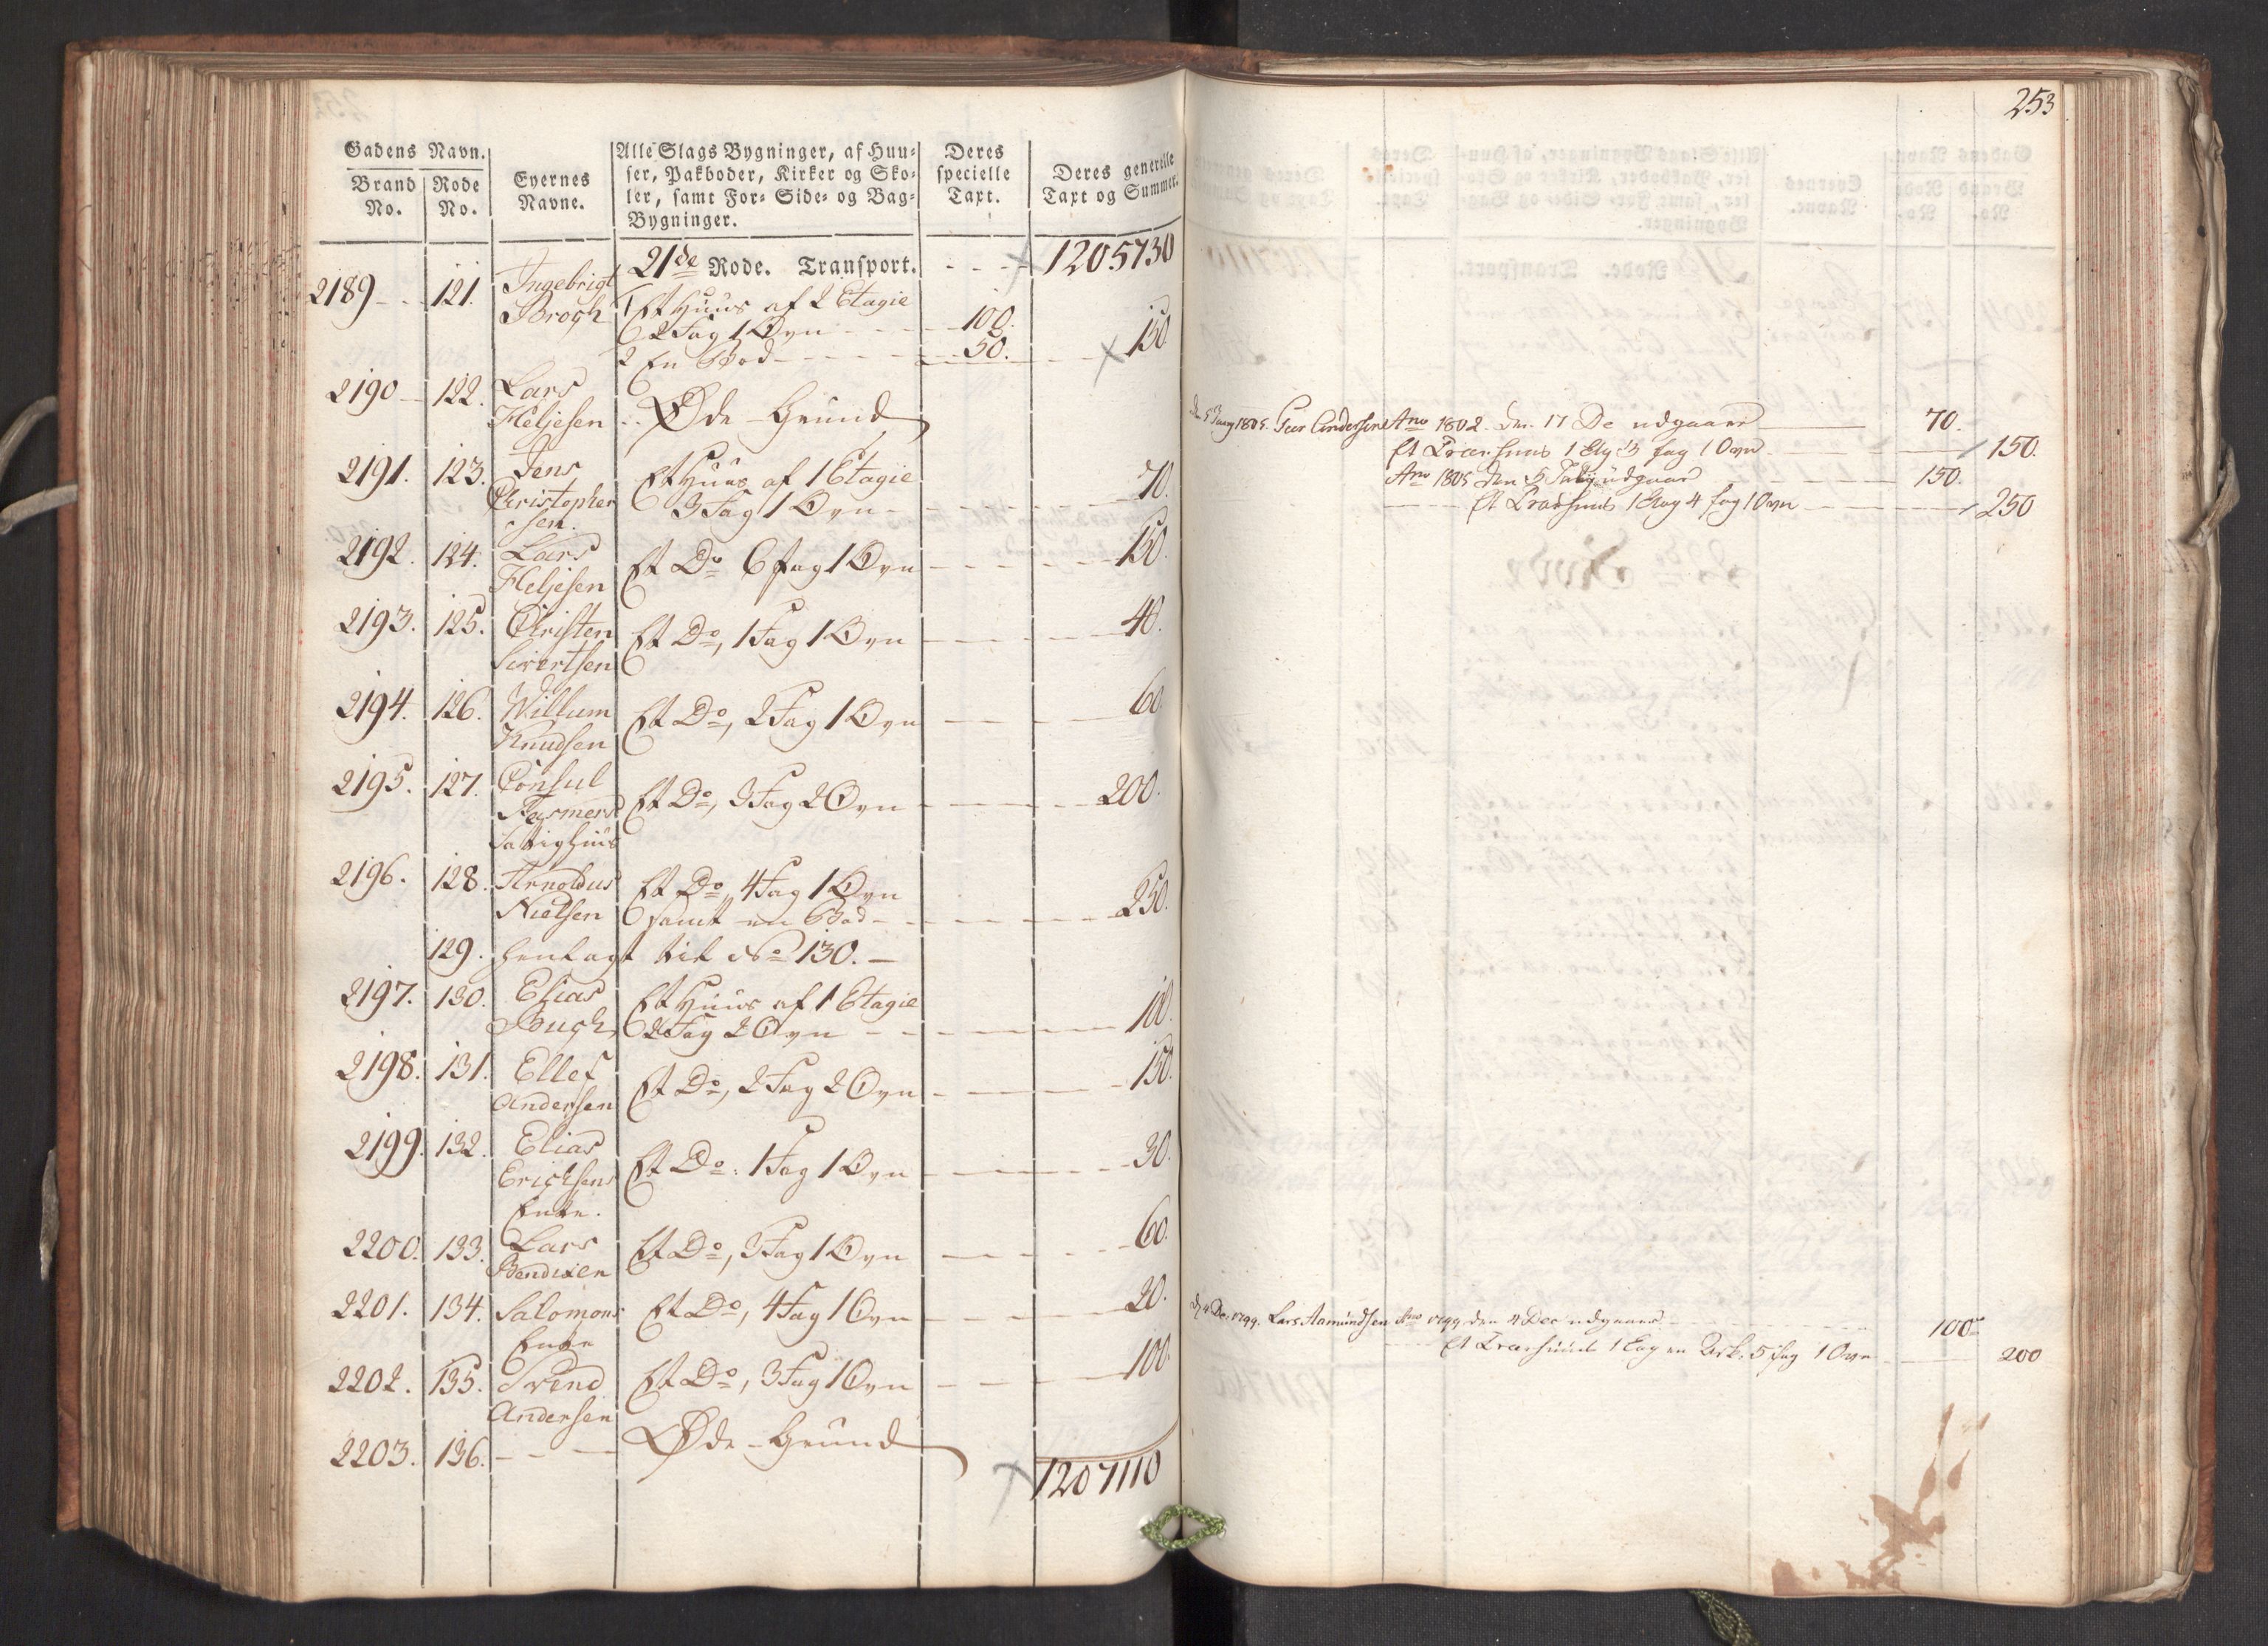 Gadens Navn.
Brand No.
Rode No.
Eyernes Navne.
Alle Slags Bygninger, af Huu-
ser, Pakboder, Kirker og Sko-
ler, samt For- Side- og Bag-
Bygninger.
Deres specielle Taxt.
Deres generelle Taxt og Summer.
21de Rode. Transport. 1205730
2189 121. Ingebrigt 1 Et Huus af 2 Etagie
Brogh 2 Fag 1 Ovn 100.
2 En Bod 50. 150
2190 122. Lars
Heljesen Øde Grund
2191. 123. Jens Et Huus af 1 Etagie
Christopher 3 Fag 1 Ovn 70.
sen.
2192. 124. Lars Et Do 6 fag 1 Ovn 150.
Heljesen
2193. 125. Christen Et Do, 1 Fag 1 Ovn 40.
Sivertsen
2194. 126. Willum Et Do, 2 Fag 1 Ovn 60.
Knudsen
2195. 127. Consul Et Do, 3 Fag 2 Ovn 200.
Fattighuus
2196. 128. Arnoldus Et Do, 4 Fag 1 Ovn
Nielsen samt en Bod 250.
129. henlagt til No 130.
2197. 130. Elias Et Huus af 1 Etagie
Bugh 2 Fag 2 Ovn 100.
2198. 131. Ellef Et Do, 2 Fag 2 Ovn 150.
Andersen
2199. 132. Elias Et Do: 1 Fag 1 Ovn 30.
Erichsens
Enke.
2200. 133. Lars Et Do, 3 Fag 1 Ovn 60.
Bendixen
2201. 134. Salomons Et Do, 4 Fag 1 Ovn 20.
Enke
2202. 135. Svend Et Do, 3 Fag 1 Ovn 100.
Andersen
2203. 136. Øde Grund
1207110
253
1805. Peer Andersen Ano 1802. den 17 De udgaaer 70.
Et Træehuus 1 Etg 3 fag 1 Ovn 150.
Ano 1805 den 5 udgaaer 150.
Et Træehuus 1 Etag 4 fag 1 Ovn 250
d. 4 De. 1799. Lars Aamundsen Ano 1799 den 4 Dec udgaaer 100
Et Træehuus 1 Etag en Ark. 5 fag 1 Ovn 200